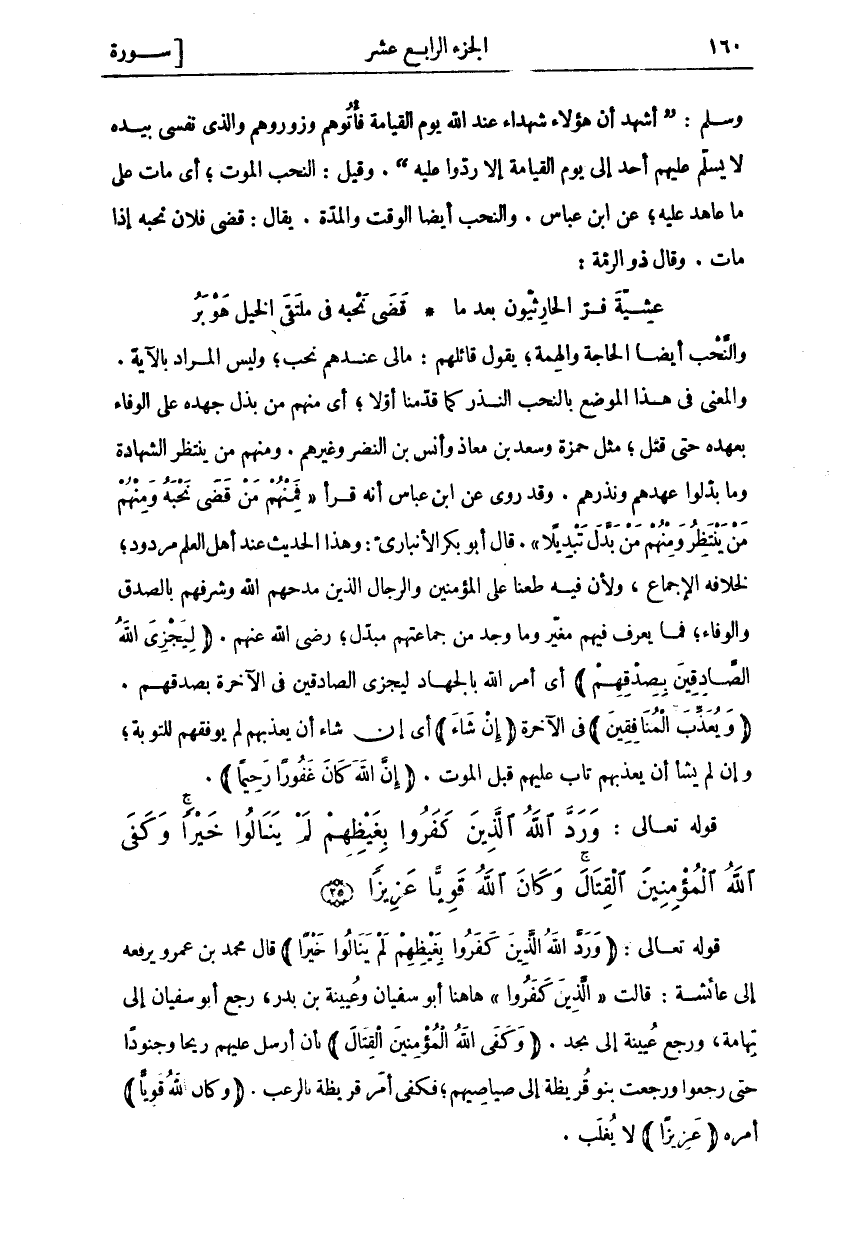 ١٦٠ الجزء الرابع عشر [ سورة
وسلم : " أشهد أن هؤلاء شهداء عند الله يوم القيامة فأْتُوهم وزوروهم والذى نفسى بيده
لا يسلّم عليهم أحد إلى يوم القيامة إلا ردّوا عليه " . وقيل : النحب الموت ؛ أى مات على
ما عاهد عليه ؛ عن ابن عباس . والنحب أيضا الوقت والمدّة . يقال : قضى فلان نحبه إذا
مات . وقال ذو الرمّة :
عشِيّةَ فرّ الحارِثيُّون بعد ما * قَضَى نَحْبه فى ملتَقَى الخيل هَوْبَرُ
والنَّحْب أيضا الحاجة والهِمة ؛ يقول قائلهم : مالى عندهم نحب ؛ وليس المراد بالآية .
والمعنى فى هذا الموضع بالنحب النذر كما قدّمنا أوّلا ؛ أى منهم من بذل جهده على الوفاء
بعهده حتى قتل ؛ مثل حمزة وسعد بن معاذ وأنس بن النضر وغيرهم . ومنهم من ينتظر الشهادة
وما بدّلوا عهدهم ونذرهم . وقد روى عن ابن عباس أنه قرأ « فَمِنْهُمْ مَنْ قَضَى نَحْبَهُ وَمِنْهُمْ
مَنْ يَنْتَظِرُ وَمِنْهُمْ مَنْ بَدَّلَ تَبْدِيلًا » . قال أبو بكر الأنبارىّ : وهذا الحديث عند أهل العلم مردود ؛
لخلافه الإجماع ، ولأن فيه طعنا على المؤمنين والرجال الذين مدحهم الله وشرفهم بالصدق
والوفاء ؛ فما يعرف فيهم مغيّر وما وجد من جماعتهم مبدّل ؛ رضى الله عنهم . ﴿ لِيَجْزِىَ اللهُ
الصَّادِقِينَ بِصِدْقِهِمْ ﴾ أى أمر الله بالجهاد ليجزى الصادقين فى الآخرة بصدقهم .
﴿ وَيُعَذِّبَ الْمُنَافِقِينَ ﴾ فى الآخرة ﴿ إِنْ شَاءَ ﴾ أى إن شاء أن يعذبهم لم يوفقهم للتوبة ؛
وإن لم يشأ أن يعذبهم تاب عليهم قبل الموت . ﴿ إِنَّ اللهَ كَانَ غَفُورًا رَحِيمًا ﴾ .
قوله تعالى : وَرَدَّ ٱللَّهُ ٱلَّذِينَ كَفَرُوا بِغَيْظِهِمْ لَمْ يَنَالُوا خَيْرًاۚ وَكَفَى
ٱللَّهُ ٱلْمُؤْمِنِينَ ٱلْقِتَالَۚ وَكَانَ ٱللَّهُ قَوِيًّا عَزِيزًا ٢٥
قوله تعالى : ﴿ وَرَدَّ اللهُ الَّذِينَ كَفَرُوا بِغَيْظِهِمْ لَمْ يَنَالُوا خَيْرًا ﴾ قال محمد بن عمرو يرفعه
إلى عائشة : قالت « الَّذِينَ كَفَرُوا » هاهنا أبو سفيان وعُيينة بن بدر ، رجع أبو سفيان إلى
تِهامة ، ورجع عُيينة إلى نجد . ﴿ وَكَفَى اللهُ الْمُؤْمِنِينَ الْقِتَالَ ﴾ بأن أرسل عليهم ريحا وجنودًا
حتى رجعوا ورجعت بنو قُريظة إلى صياصِيهم ؛ فكفى أمر قريظة بالرعب . ﴿ وكان اللهُ قَوِيًّا ﴾
أمره ﴿ عَزِيزًا ﴾ لا يُغلَب .